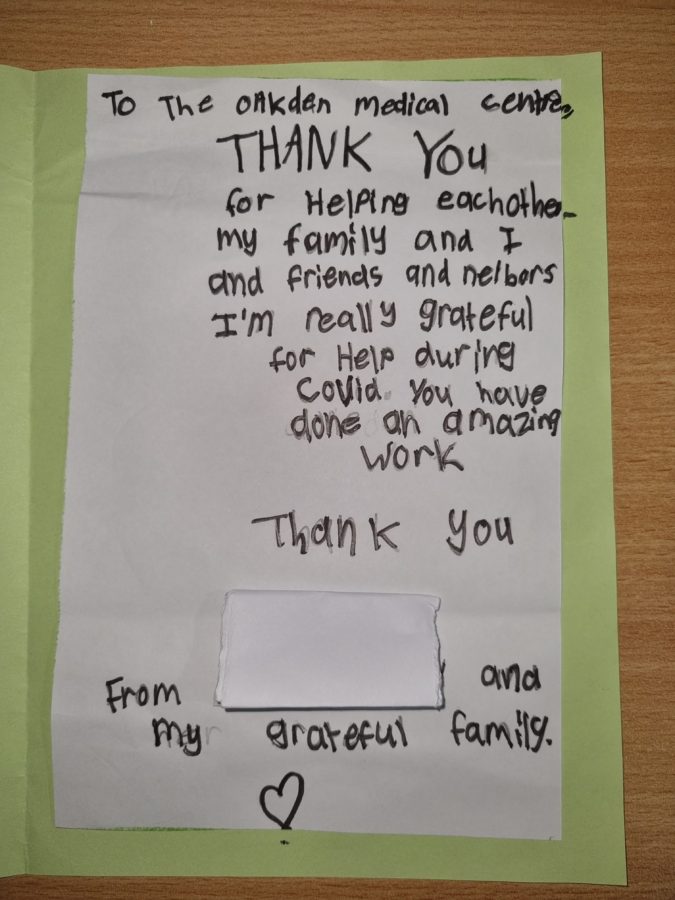 To The OAkden medical centre,
THANK You
for Helping eachother
my family and I
and friends and neibors
I'm really grateful
for Help during
Covid. You have
done an amazing
work
Thank you
From and
my grateful family.